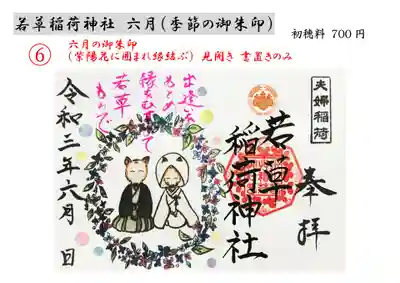 若草稲荷神社 六月(季節の御朱印)
初穂料 700円
⑥
六月の御朱印
(紫陽花に囲まれ縁結ぶ) 見開き 書置きのみ
出逢いを
もとめ
縁をむすて
若草
もので
令和三年六月 日
夫婦稲荷
奉拝
若草
稲荷神社